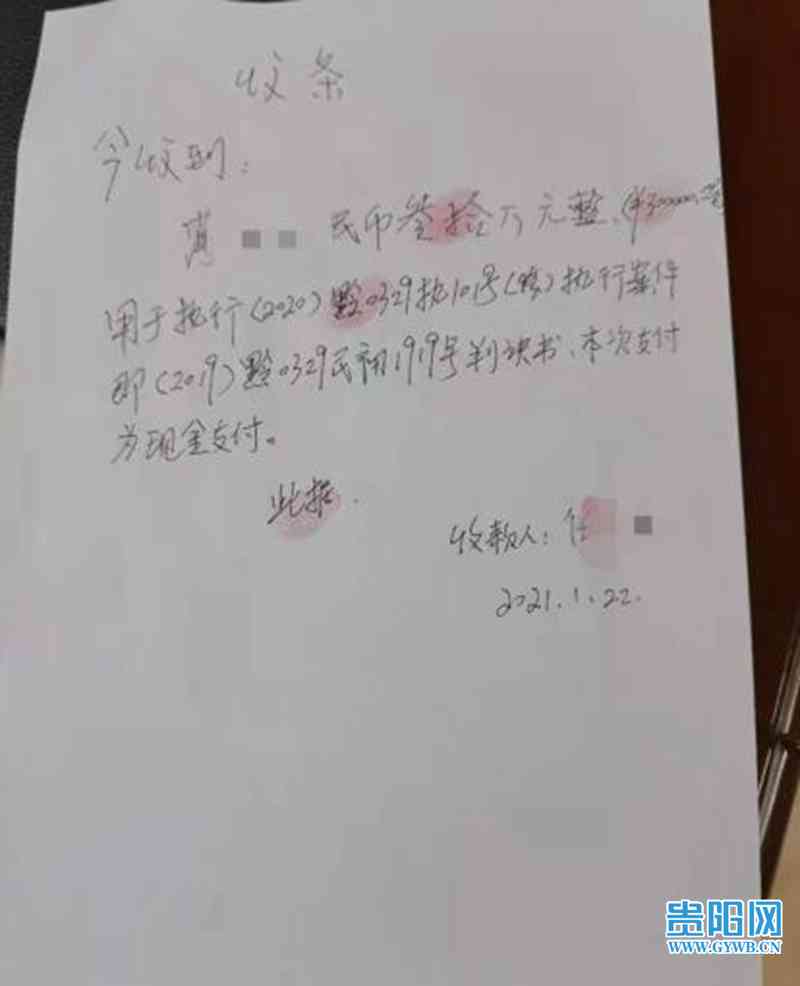 收条
今收到:
民币叁拾万元整、(¥300000元
用于执行(2020)黔0329执101号(恢)执行案件
即(2019)黔0329民初1919号判决书、本次支付
为现金支付。
此据.
收款人: 任
2021.1.22.
贵阳网
WWW.GYWB.CN